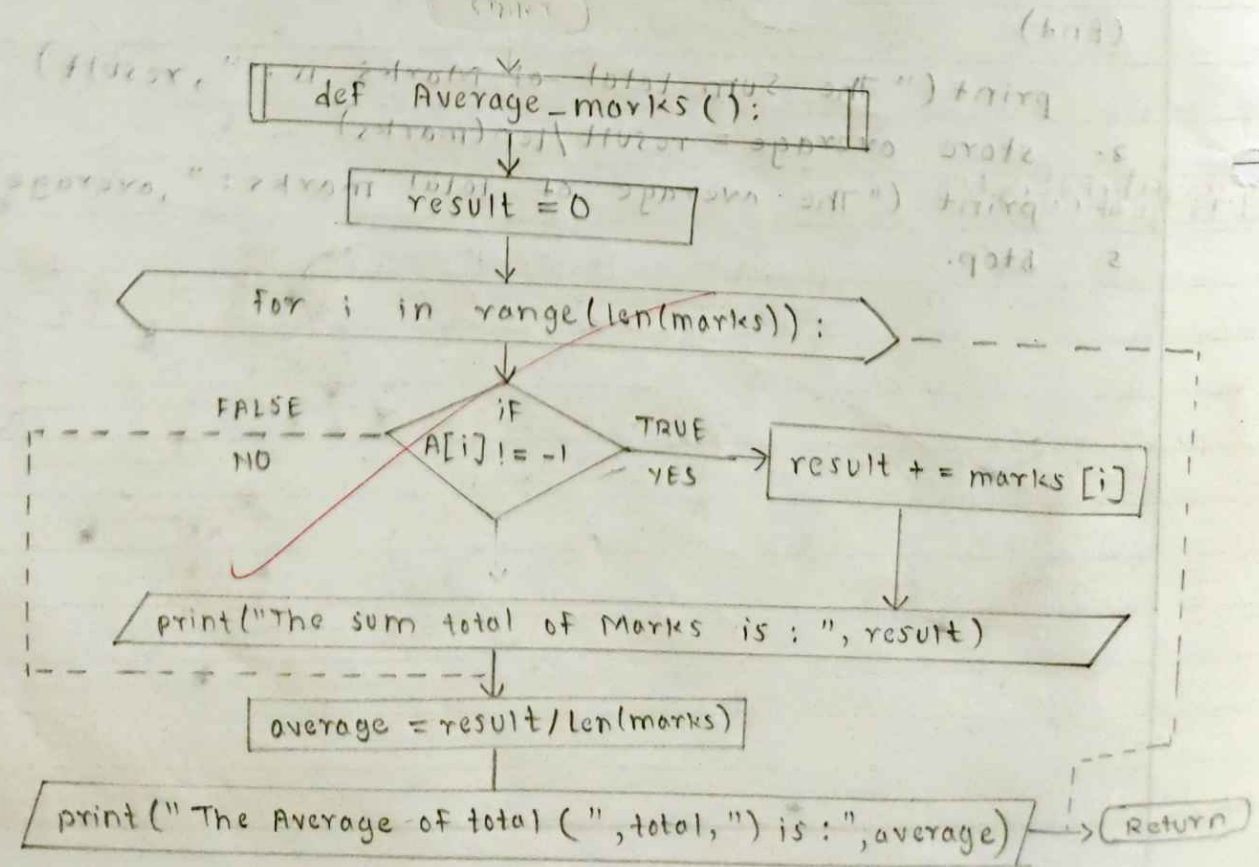 def Average_marks():
result = 0
For i in range(len(marks)):
FALSE
NO
iF
A[i] != -1
TRUE
YES
result += marks [i]
print("The sum total of Marks is : ", result)
average = result/len(marks)
print (" The Average of total (",total,") is :",average)
Return